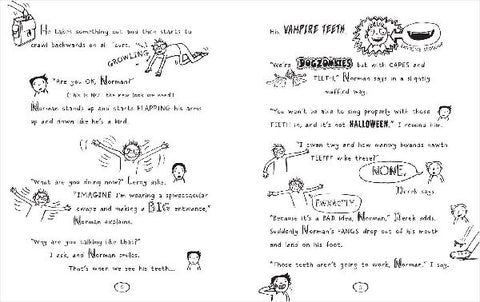 He takes something out and then starts to
crawl backwards on all fours.
GROWLING
"Are you OK, Norman?"
Norman stands up and starts FLAPPING his arms
up and down like he's a bird.
"What are you doing now?" Leroy asks.
"IMAGINE I'm wearing a
and making a BIG entrance,"
Norman explains.
"Why are you talking like that?"
I ask, and Norman smiles.
That's when we see his teeth...
His VAMPIRE TEETH
"We're DOGZOMBIES but with CAPES and
TEETH," Norman says in a slightly
muffled way.
"You won't be able to sing properly with those
TEETH in, and it's not HALLOWEEN," I remind him.
"I
like these?"
NONE,
Derek says.
EWXACTLY.
"Because it's a BAD idea, Norman," Derek adds.
Suddenly Norman's FANGS drop out of his mouth
and land on his foot.
"Those teeth aren't going to work, Norman," I say.